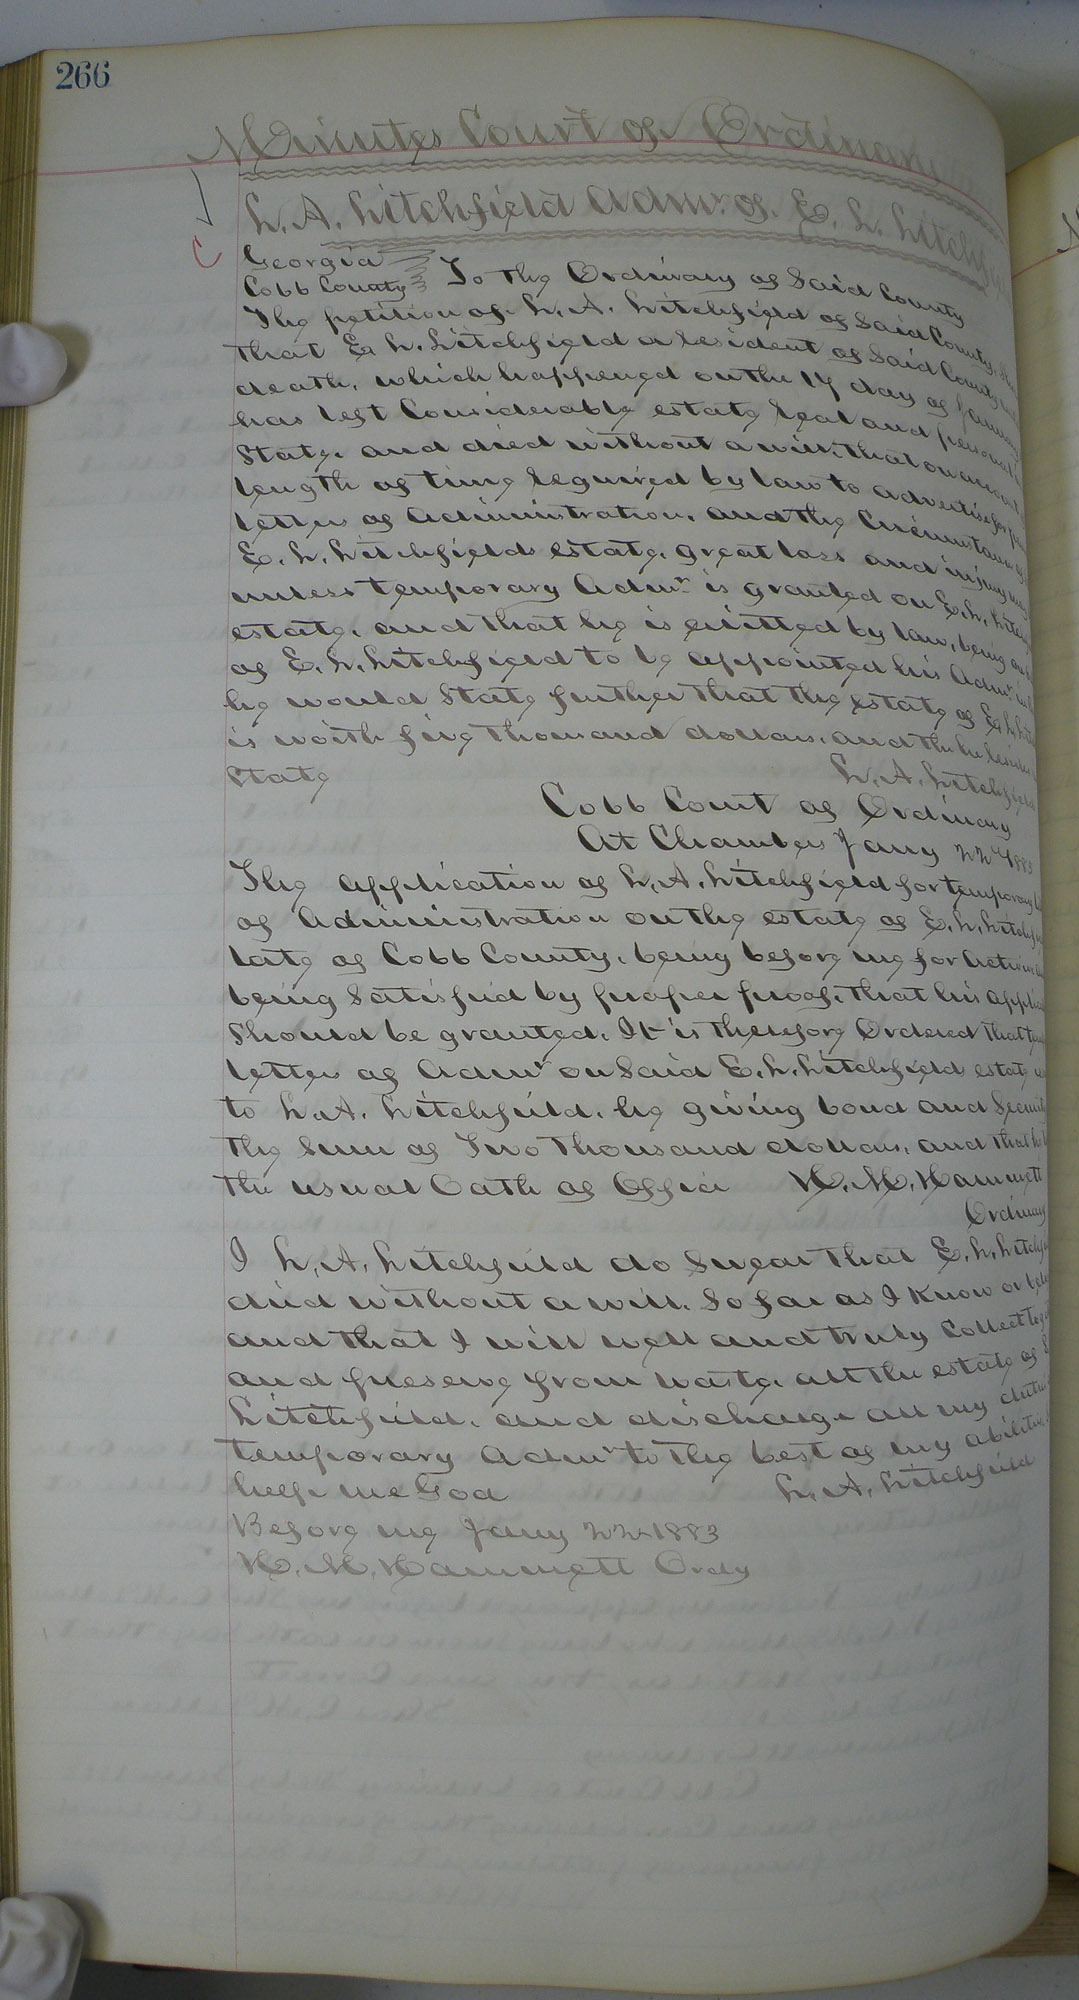 266
Minutes Court of Ordinary
L. A. Litchfield Admr. of. E. L. Litchf
Georgia
Cobb County To the Ordinary of Said County
The petition of L. A. Litchfield of Said County,
that E. L. Litchfield a resident of Said County
death, which happened on the 17 day of January
has left Considerable estate real and personal
State. and died without a will, that on account
length of time required by law to advertise for
letters of Administration, and the Circumstances
E. L. Litchfields estate. great loss and injury may
unless temporary Admr. is granted on E. L. Litch
estate, and that he is entitled by law, being
of E. L. Litchfield to be appointed his Admr.
he would State further that the estate of E. L.
is worth five thousand dollars. and the he
State L. A. Litchfield
Cobb Court of Ordinary
At Chambers Jany 22d 1883
The application of L. A. Litchfield for temporary
of Administration on the estate of E. L. Litchf
late of Cobb County, being before me for Action
being Satisfied by proper proof, that his appli
Should be granted. It is therefore Ordered that
letters of Admr on Said E. L. Litchfield estate
to L. A. Litchfield, he giving bond and Securi
the Sum of Two thousand dollars, and that he
the usual Oath of Office H. M. Hammett
Ordinary
I L. A. Litchfield do Swear that E. L. Litchf
died without a will. So far as I Know or
and that I will well and truly Collect
and preserve from waste, all the estate of E
Litchfield. and discharge all my duties
temporary Admr to the best of my abilities
help me God L. A. Litchfield
Before me Jany 22d 1883
H. M. Hammett Ordy